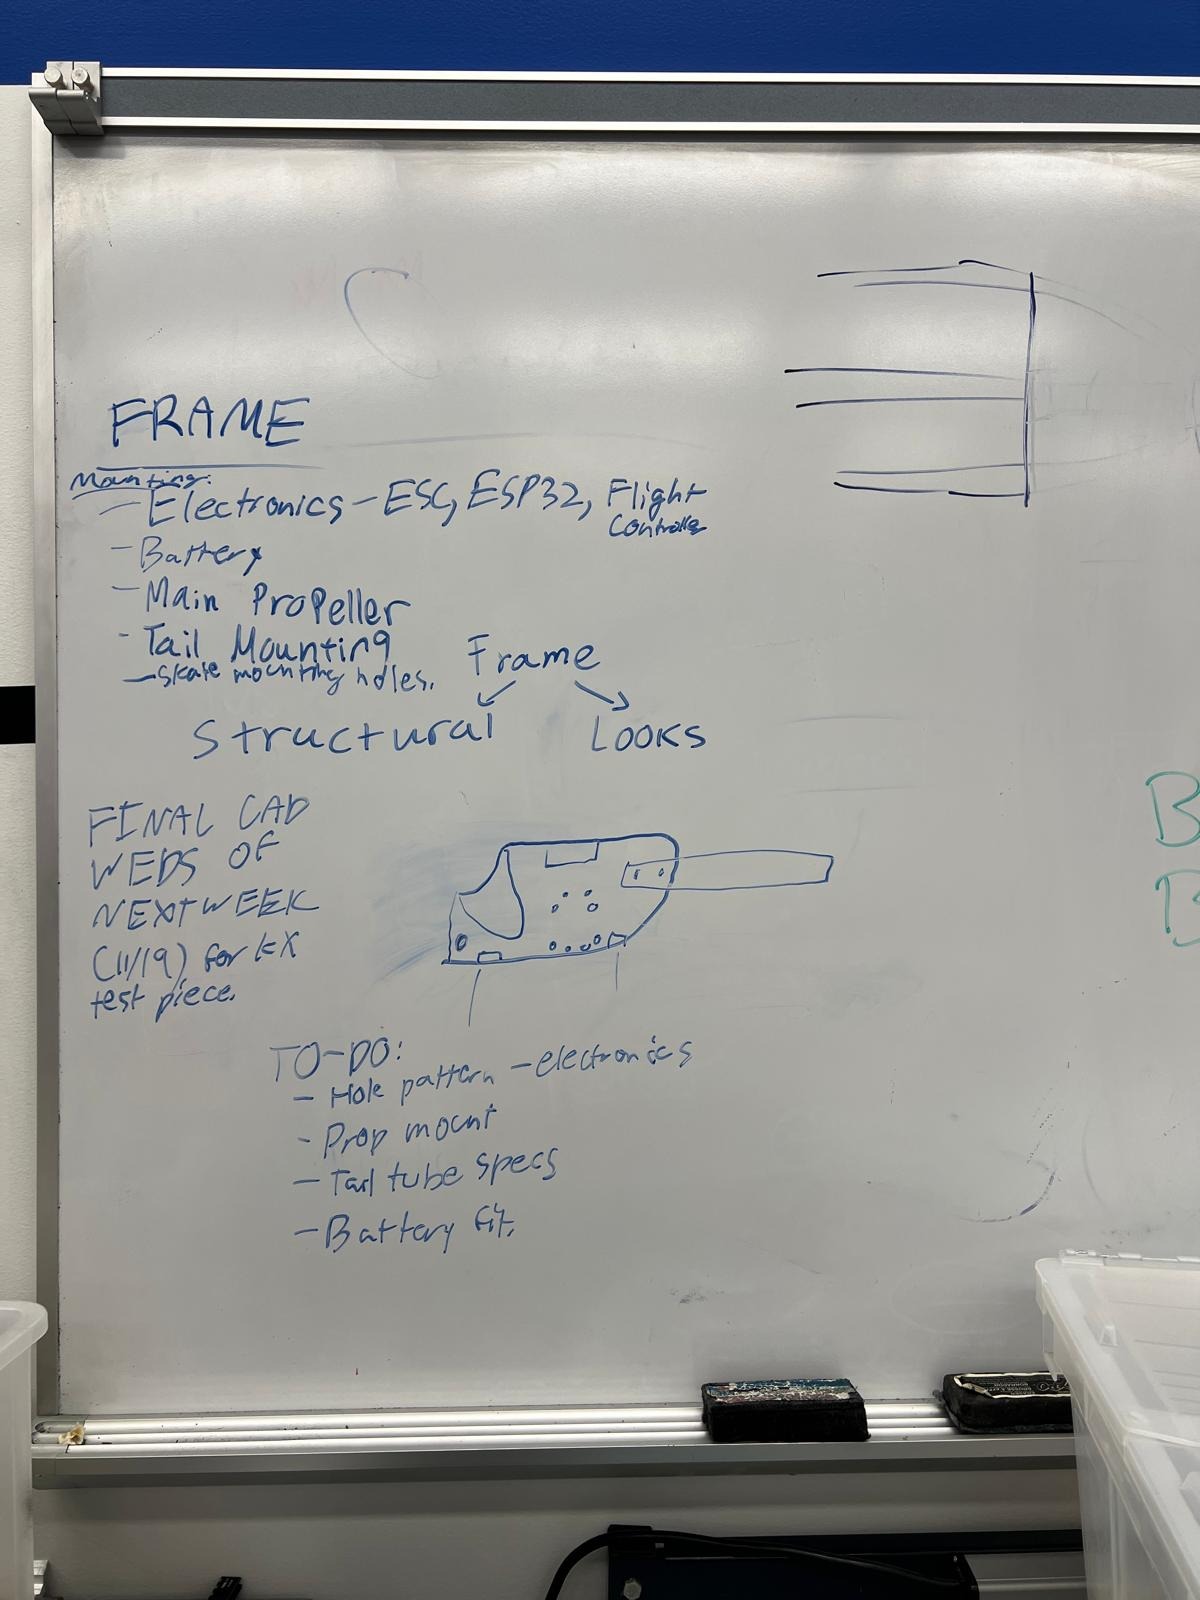 FRAME
Mounting:
- Electronics - ESC, ESP32, Flight
Controller
- Battery
- Main Propeller
- Tail Mounting
- Skate mounting holes.
Frame
Structural
Looks
FINAL CAD
WEDS OF
NEXT WEEK
(11/19) for kX
test piece.
TO-DO:
- Hole pattern - electronics
- Prop mount
- Tail tube specs
- Battery fit.
B
B